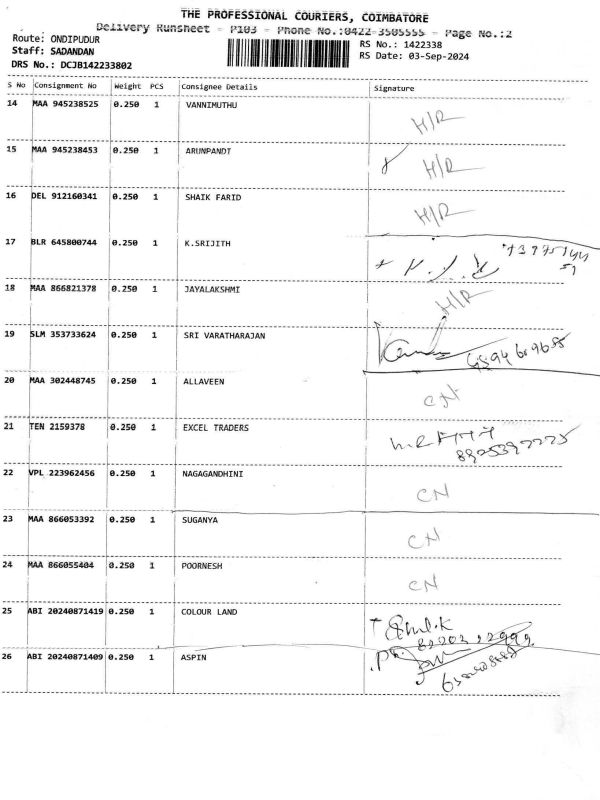 THE PROFESSIONAL COURIERS, COIMBATORE
Delivery Runsheet - P103 - Phone No.:0422-3505555 - Page No.:2
Route: ONDIPUDUR
Staff: SADANDAN
DRS No.: DCJB142233802
RS No.: 1422338
RS Date: 03-Sep-2024
S No Consignment No Weight PCS Consignee Details Signature
14 MAA 945238525 0.250 1 VANNIMUTHU H/R
15 MAA 945238453 0.250 1 ARUNPANDT H/R
16 DEL 912160341 0.250 1 SHAIK FARID H/R
17 BLR 645800744 0.250 1 K.SRIJITH
18 MAA 866821378 0.250 1 JAYALAKSHMI H/R
19 SLM 353733624 0.250 1 SRI VARATHARAJAN
20 MAA 302448745 0.250 1 ALLAVEEN CN
21 TEN 2159378 0.250 1 EXCEL TRADERS
22 VPL 223962456 0.250 1 NAGAGANDHINI CN
23 MAA 866053392 0.250 1 SUGANYA CN
24 MAA 866055404 0.250 1 POORNESH CN
25 ABI 20240871419 0.250 1 COLOUR LAND
26 ABI 20240871409 0.250 1 ASPIN